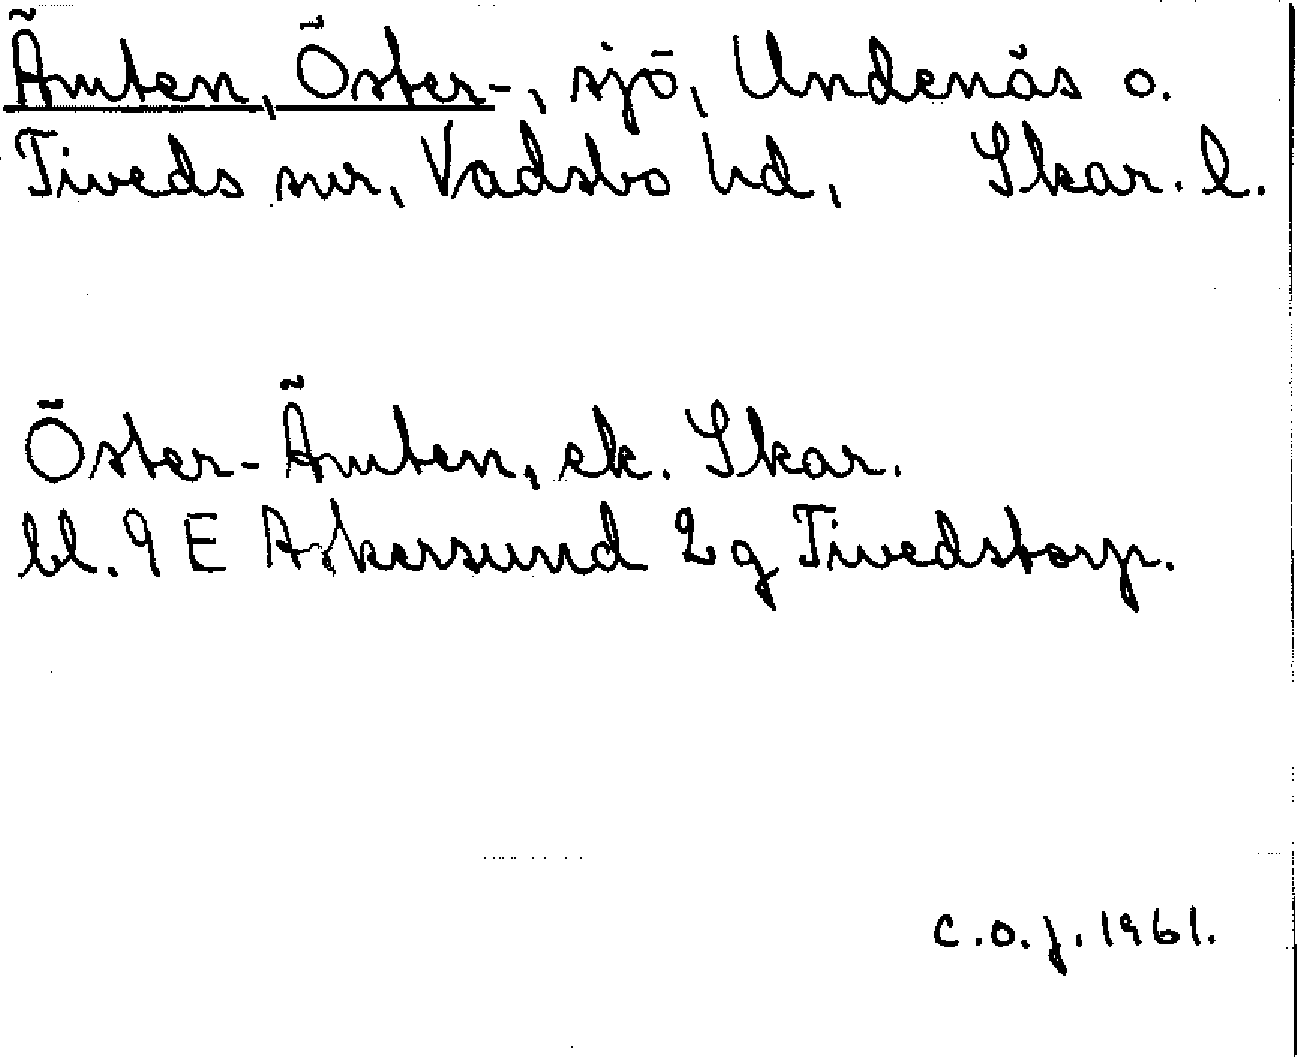 Ämten, Öster-, sjö, Undenäs o.
Tiveds snr, Vadsbo hd, Skar. l.
Öster-Ämten, ek. Skar.
bl. 9 E Askersund 2 g Tivedstorp.
C.O.J. 1961.